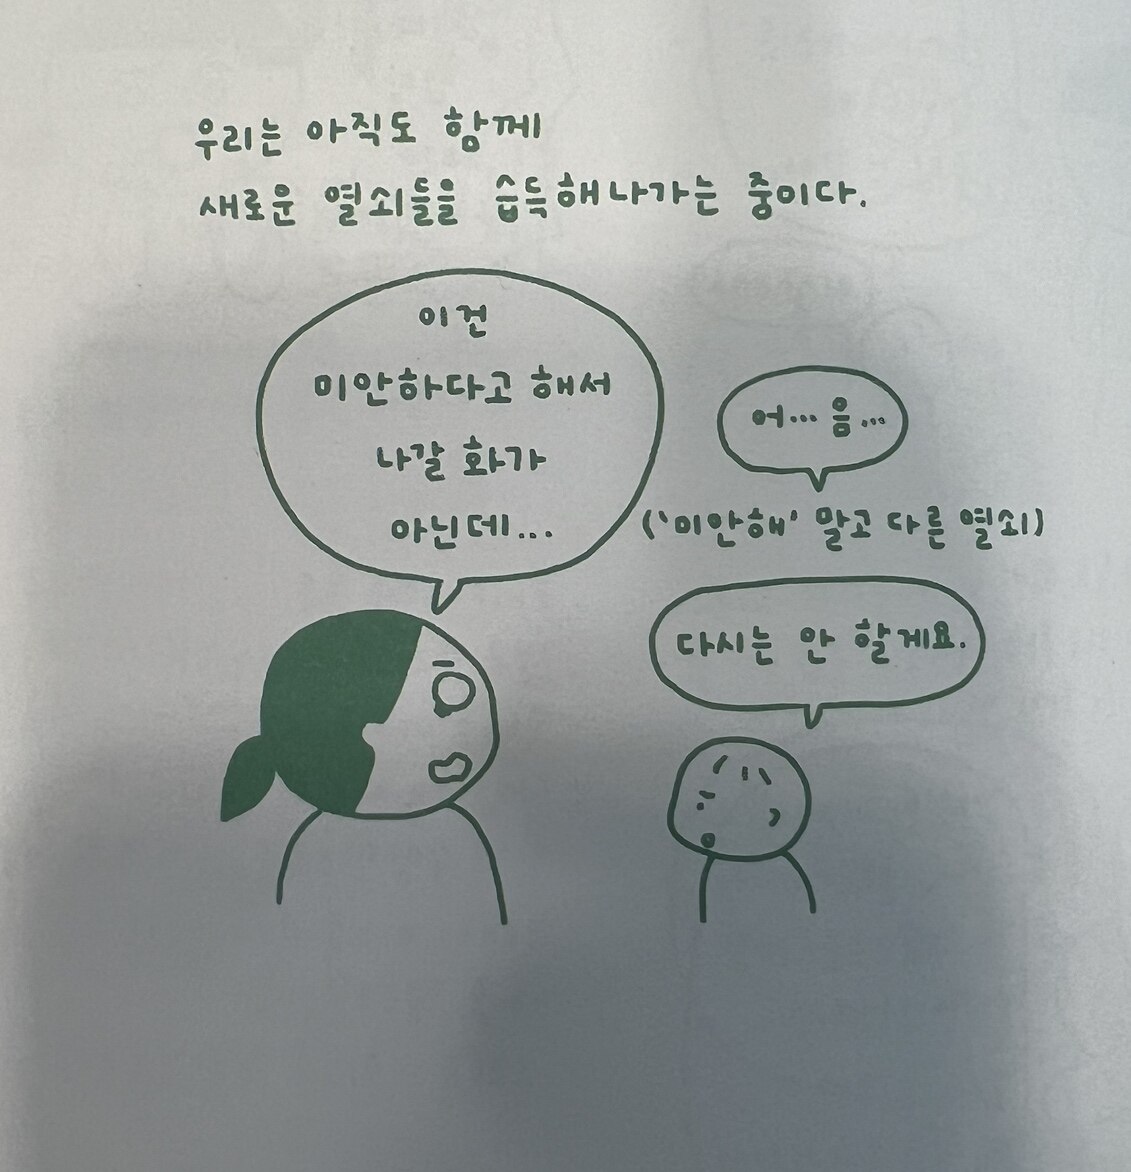 우리는 아직도 함께
새로운 열쇠들을 습득해나가는 중이다.
이건
미안하다고 해서
나갈 화가
아닌데...
어... 음...
('미안해' 말고 다른 열쇠)
다시는 안 할게요.